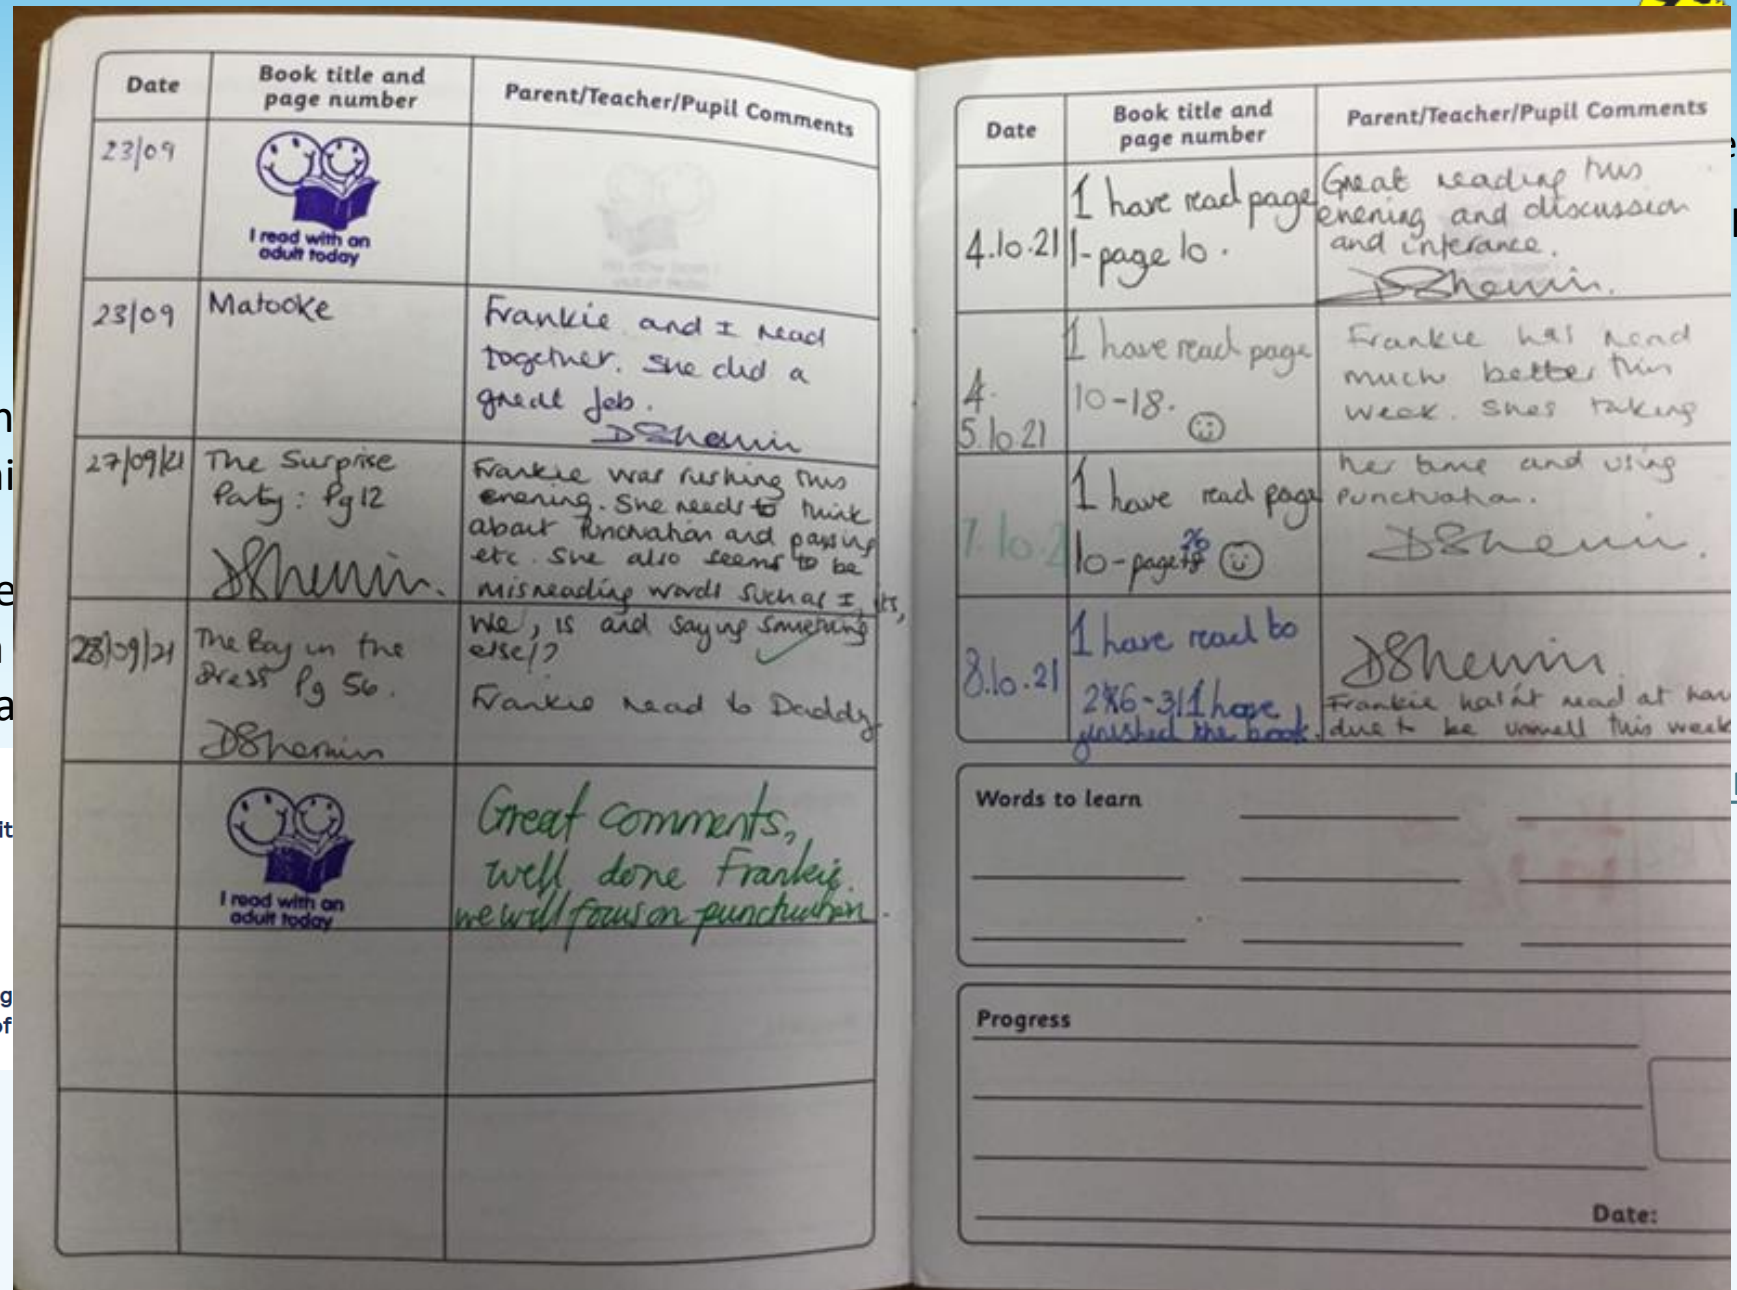 Date
Book title and
page number
Parent/Teacher/Pupil Comments
23/09
I read with an
adult today
23/09
Matooke
Frankie and I read
together. She did a
great job.
DShewin
27/09/21
The Surprise
Party: Pg12
DShewin.
Frankie was rushing this
evening. She needs to think
about Punctuation and passing
etc. She also seems to be
misreading words such as I, its,
we, is and saying something
else!?
28/09/21
The Boy in the
Dress Pg 56.
DShewin
Frankie read to Daddy
I read with an
adult today
Great comments,
well done Frankie.
we will focus on punctuation.
Date
Book title and
page number
Parent/Teacher/Pupil Comments
4.10.21
I have read page
1-page 10.
Great reading this
evening and discussion
and inferance.
DShewin.
4.
5.10.21
I have read page
10-18.
Frankie has read
much better this
week. Shes taking
her time and using
punctuation.
DShewin.
7.10.2
I have read page
10-page 26
8.10.21
I have read to
26-31 I have
finished the book.
DShewin.
Frankie hasn't read at
due to be unwell this week
Words to learn
Progress
Date: